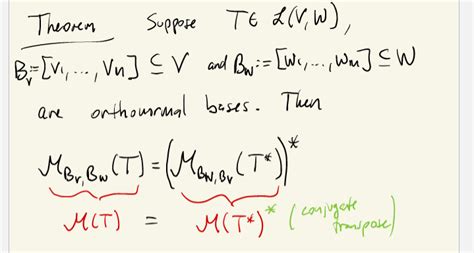 Theorem Suppose T ∈ ℒ(V,W),
B_V := [v₁, ..., vₙ] ⊆ V and B_W := [w₁, ..., wₘ] ⊆ W
are orthonormal bases. Then
ℳ_{B_V,B_W}(T) = (ℳ_{B_W,B_V}(T*))*
ℳ(T) = ℳ(T*)* (conjugate
transpose)